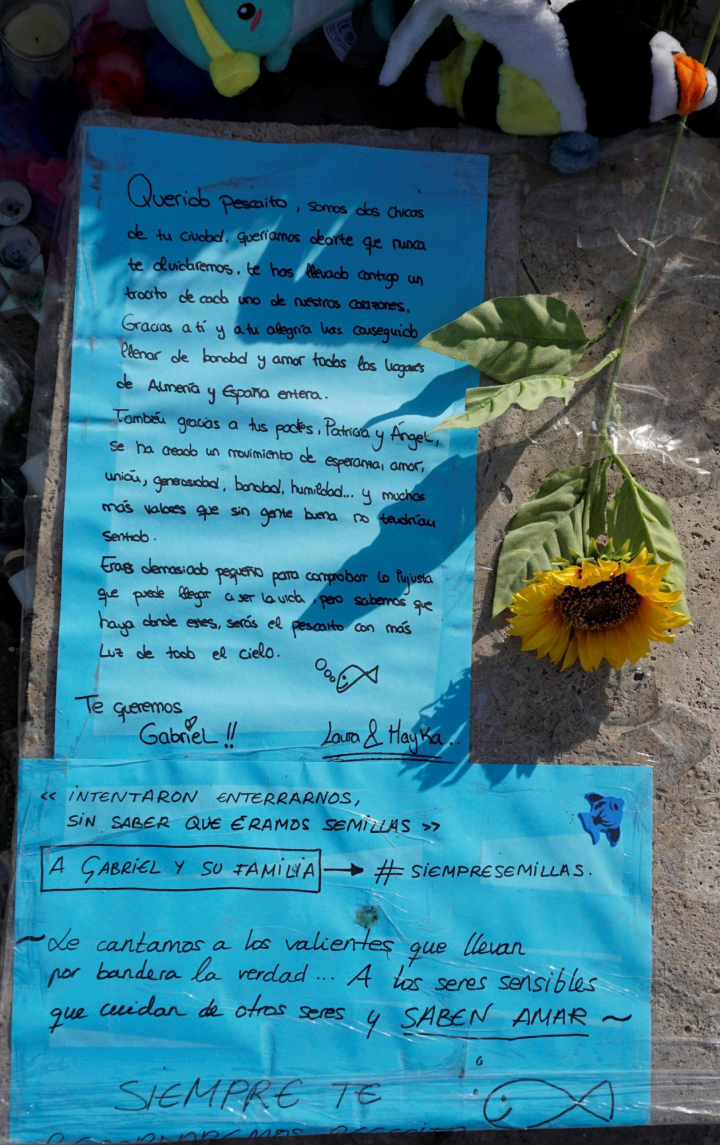 Querido pescaito, somos dos chicas
de tu ciudad. queríamos decirte que nunca
te olvidaremos, te has llevado contigo un
trocito de cada uno de nuestros corazones.
Gracias a tí y a tu alegría has conseguido
llenar de bondad y amor todos los lugares
de Almería y España entera.
También gracias a tus padres, Patricia y Ángel,
se ha creado un movimiento de esperanza, amor,
unión, generosidad, bondad, humildad... y muchos
más valores que sin gente buena no tendrían
sentido.
Eras demasiado pequeño para comprobar lo injusta
que puede llegar a ser la vida, pero sabemos que
haya donde estes, serás el pescaito con más
Luz de todo el cielo.
Te queremos
Gabriel !! Laura & Hayka..
<< INTENTARON ENTERRARNOS,
SIN SABER QUE ÉRAMOS SEMILLAS >>
A GABRIEL Y SU FAMILIA → # SIEMPRESEMILLAS.
~ Le cantamos a los valientes que llevan
por bandera la verdad... A los seres sensibles
que cuidan de otros seres y SABEN AMAR ~
SIEMPRE TE